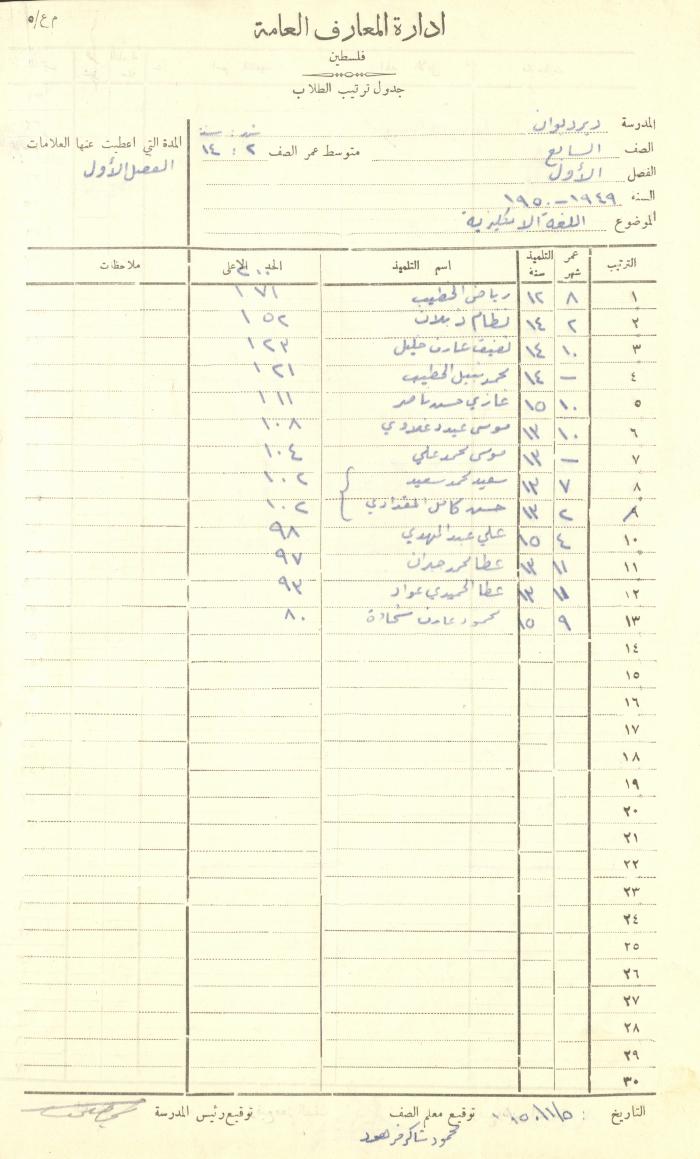 م ع/٥
ادارة المعارف العامة
فلسطين
جدول ترتيب الطلاب
المدرسة ديردبوان
الصف السابع متوسط عمر الصف ٢ : ١٤ شهر : سنة
الفصل الأول
السنة ١٩٤٩ – ١٩٥٠
الموضوع اللغة الانكليزية
المدة التي اعطيت عنها العلامات
الفصل الأول
الترتيب عمر التلميذ شهر سنة اسم التلميذ الحد الاعلى ملاحظات
١ ٨ ١٢ رياض الخطيب ١٧١
٢ ٢ ١٤ نظام ١٥٢
٣ ١٠ ١٤ عارف خليل ١٢٣
٤ – ١٤ محمد نبيل الخطيب ١٢١
٥ ١٠ ١٥ غازي حسن ناصر ١١١
٦ ١٠ ١٣ موسى ١٠٨
٧ – ١٣ موسى محمد علي ١٠٤
٨ ٧ ١٣ سعيد محمد سعيد ١٠٢
٩ ٢ ١٣ حسن كامل ١٠٢
١٠ ٤ ١٥ علي عبد المهدي ٩٨
١١ ١١ ١٣ عطا محمد ٩٧
١٢ ١١ ١٣ عطا الحميدي عواد ٩٣
١٣ ٩ ١٥ محمود عارف شحادة ٨٠
١٤
١٥
١٦
١٧
١٨
١٩
٢٠
٢١
٢٢
٢٣
٢٤
٢٥
٢٦
٢٧
٢٨
٢٩
٣٠
التاريخ : توقيع معلم الصف توقيع رئيس المدرسة
محمود شاكر